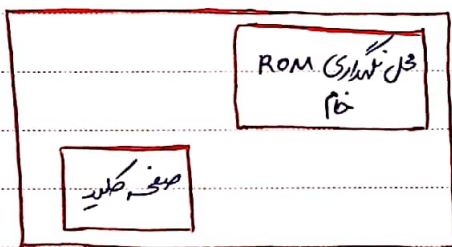 محل نگهداری ROM
خام
صفحه کلید